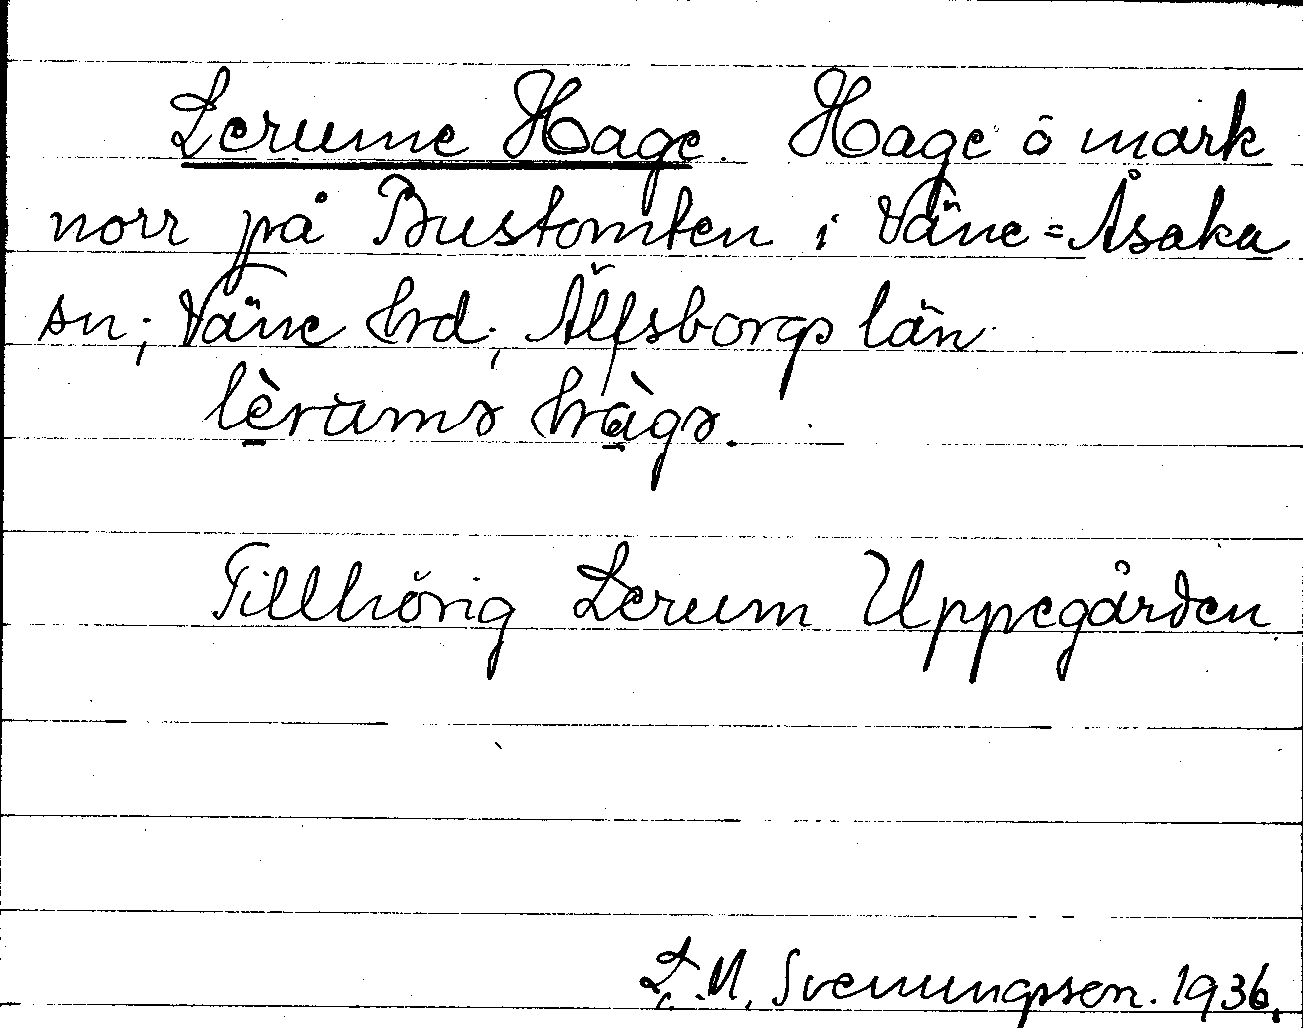 Lerume Hage. Hage ö mark
norr på Bustomten i Väne=Åsaka
sn; Väne hrd; Älfsborgs län.
lèrumə hàgə.
Tillhörig Lerum Uppegården.
L. M. Svenungsson. 1936.